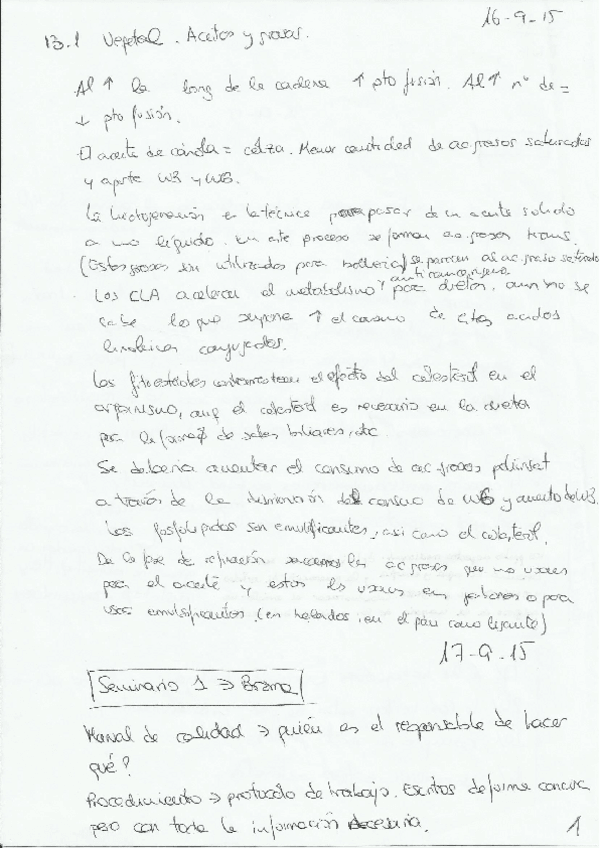 16-9-15
13.1 Vegetal. Aceites y grasas.
Al ↑ la long de la cadena ↑ pto fusión. Al ↑ nº de =
↓ pto fusión.
El aceite de canola = colza. Menor cantidad de ac grasos saturados
y aporte W3 y W6.
La hidrogenación es la técnica para pasar de un aceite solido
a uno líquido. En este proceso se forman ac grasos trans.
(Estas grasas son utilizadas para bollería) se parecen al ac graso saturado
anticancerígeno
Los CLA aceleran el metabolismo para dietas, aun no se
sabe lo que supone ↑ el consumo de estos acidos
linoleicos conjugados.
Los fitoesteroles contrarrestan el efecto del colesterol en el
organismo, aunq el colesterol es necesario en la dieta
para la formaç de sales biliares, etc
Se debería aumentar el consumo de ac grasos poliinsat
a través de la disminución del consumo de W6 y aumento de W3.
Los fosfolípidos son emulsificantes, así como el colesterol.
De la fase de refinación los ac grasos que no usamos
para el aceite y estos los usamos en jabones o para
usos emulsificantes (en helados, en el pan como ligante)
17-9-15
Seminario 1 ⇒ Broma
Manual de calidad ⇒ quién es el responsable de hacer
qué?
Procedimiento ⇒ protocolo de trabajo. Escritos de forma concisa
pero con toda la información necesaria.
1